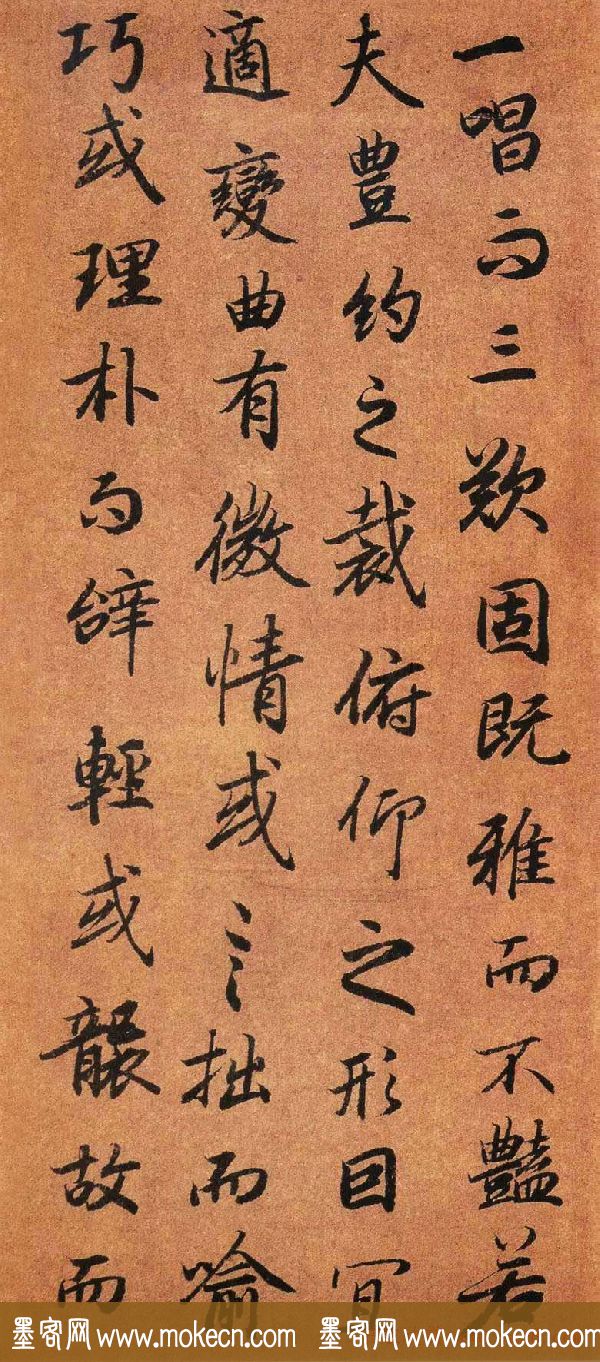 一唱而三歎固既雅而不豔若
夫豊約之裁俯仰之形因宜
適變曲有微情或言拙而喻
巧或理朴而辝輕或襲故而
墨客网 www.mokecn.com 墨客网 www.mokecn.com